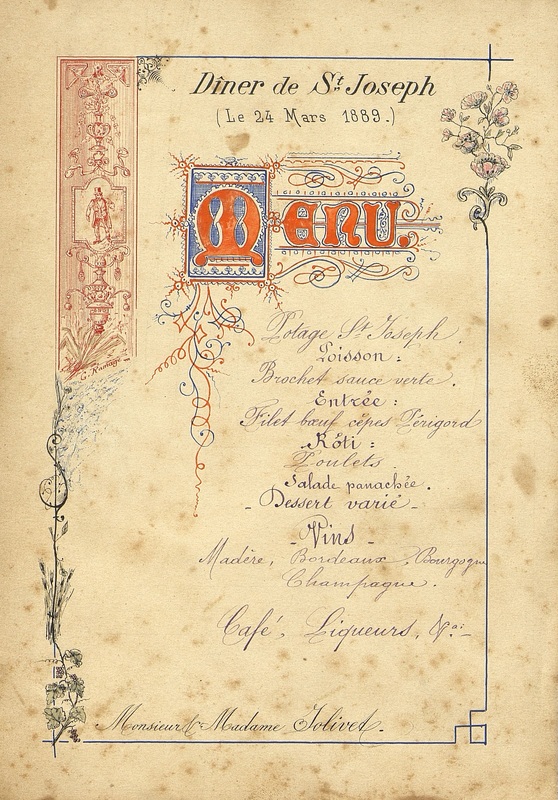 Dîner de St. Joseph
(Le 24 Mars 1889.)
MENU.
Potage St Joseph.
Poisson :
Brochet sauce verte.
Entrée :
Filet bœuf cèpes Périgord
Rôti :
Poulets.
Salade panachée.
- Dessert varié -
- Vins -
Madère, Bordeaux, Bourgogne
Champagne.
Café, Liqueurs, &a. -
Monsieur & Madame Jolivet.